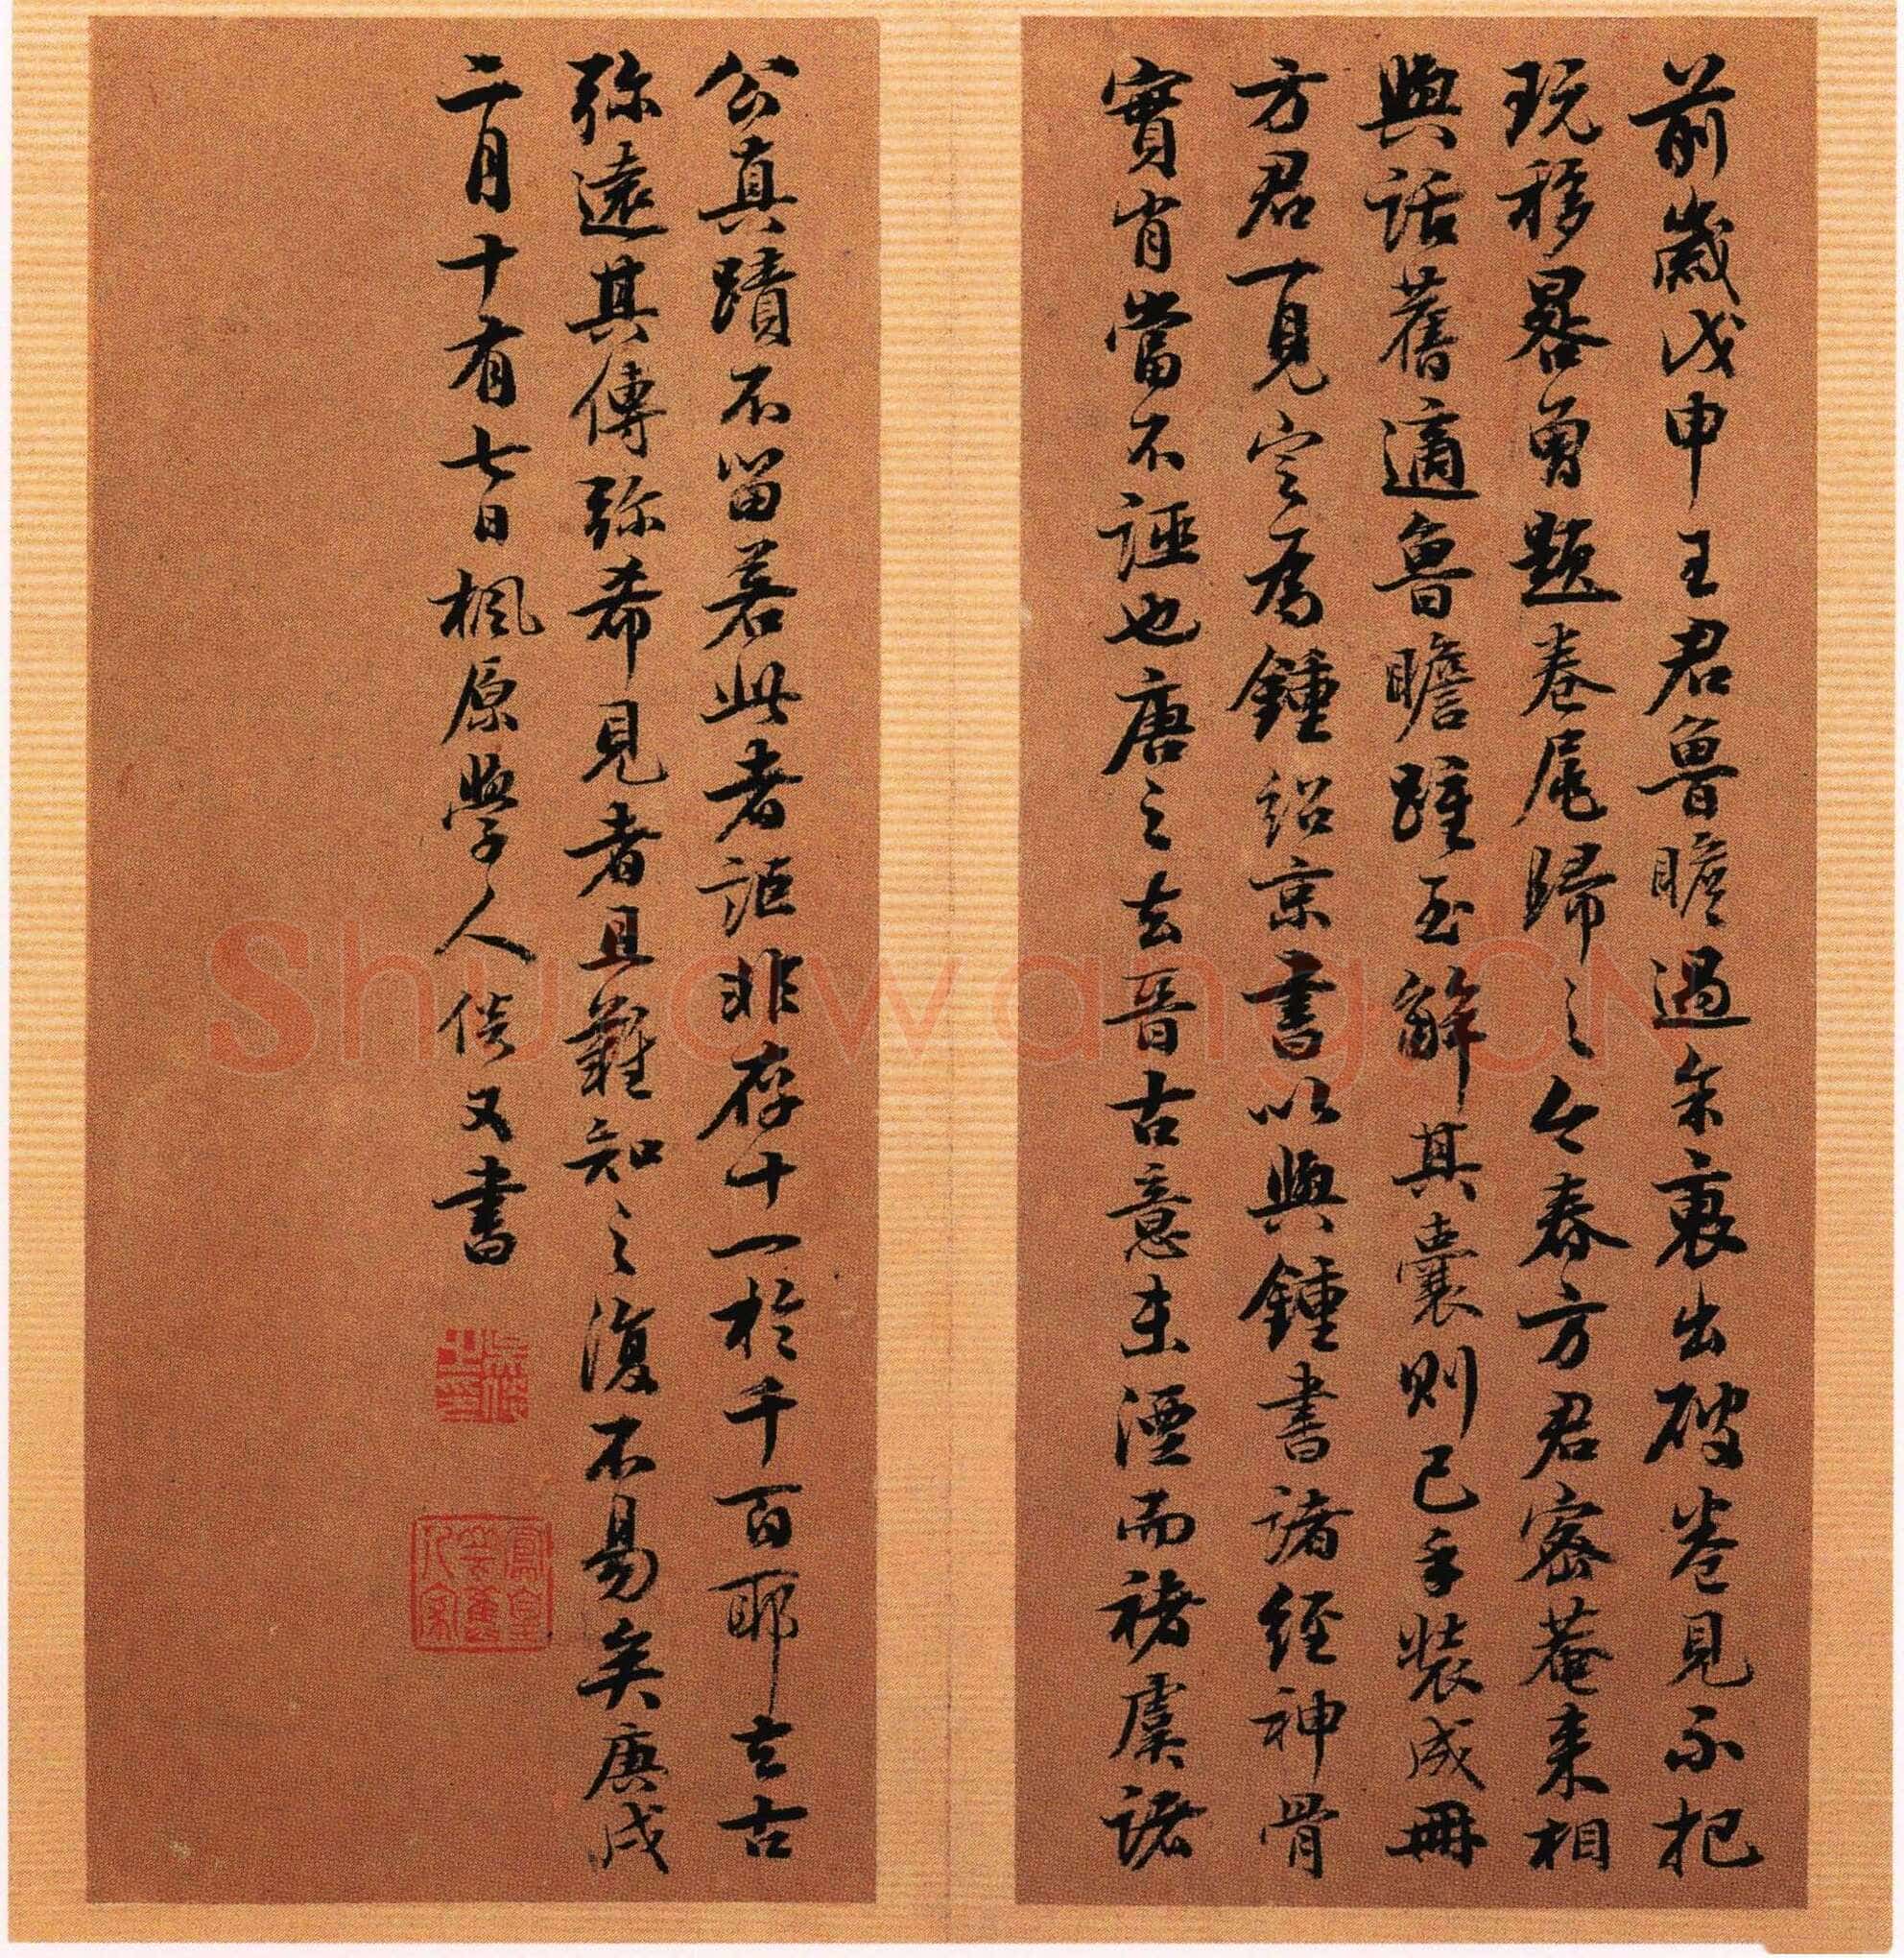 前歲戊申王君魯瞻過余裏出破卷見示把
玩移晷曾題卷尾歸之今春方君密菴来相
與話舊適魯瞻踵至解其囊則已手裝成冊
方君一見定為鍾紹京書以與鍾書諸經神骨
實肖當不誣也唐之去晋古意未湮而褚虞諸
公真蹟不留若此者詎非存十一於千百耶去古
弥遠其傳弥希見者且難知之復不易矣庚戌
二月十有七日楓原學人倓又書
Shuawang.CN